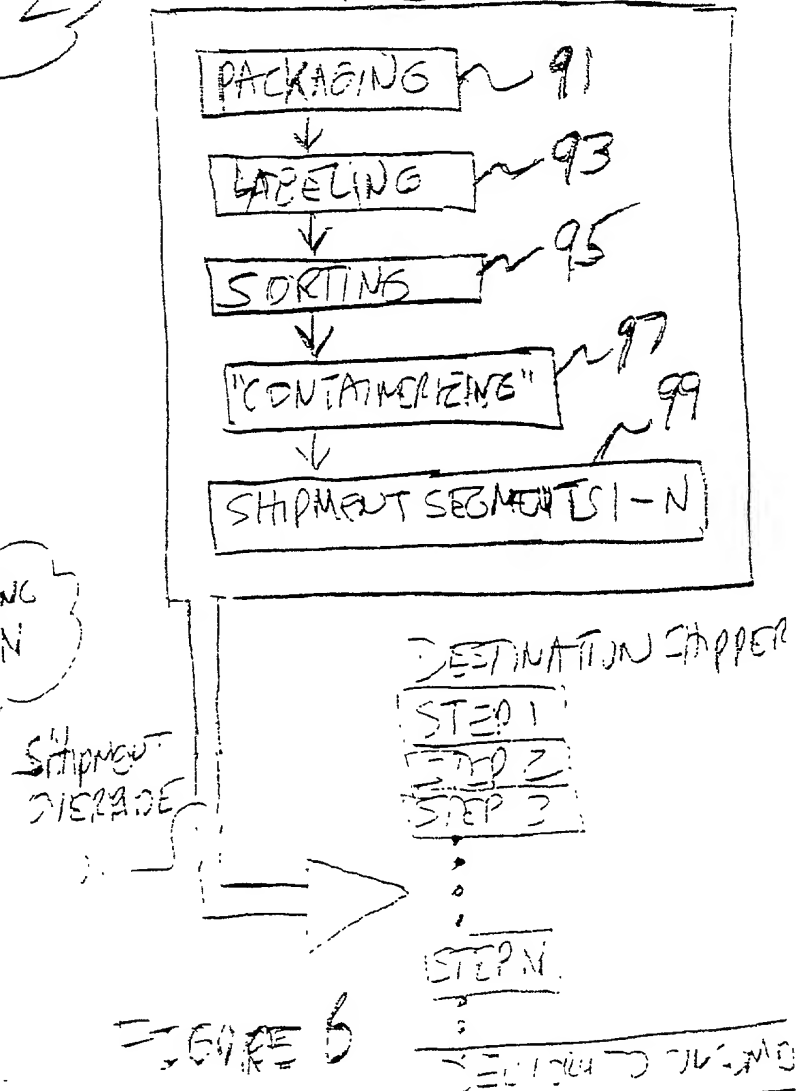 PACKAGING 91
LABELING 93
SORTING 95
"CONTAINERIZING" 97
99
SHIPMENT SEGMENTS 1-N
DESTINATION SHIPPER
STEP 1
STEP 2
STEP 3
SHIPMENT
OVERRIDE
STEP N
FIGURE 6